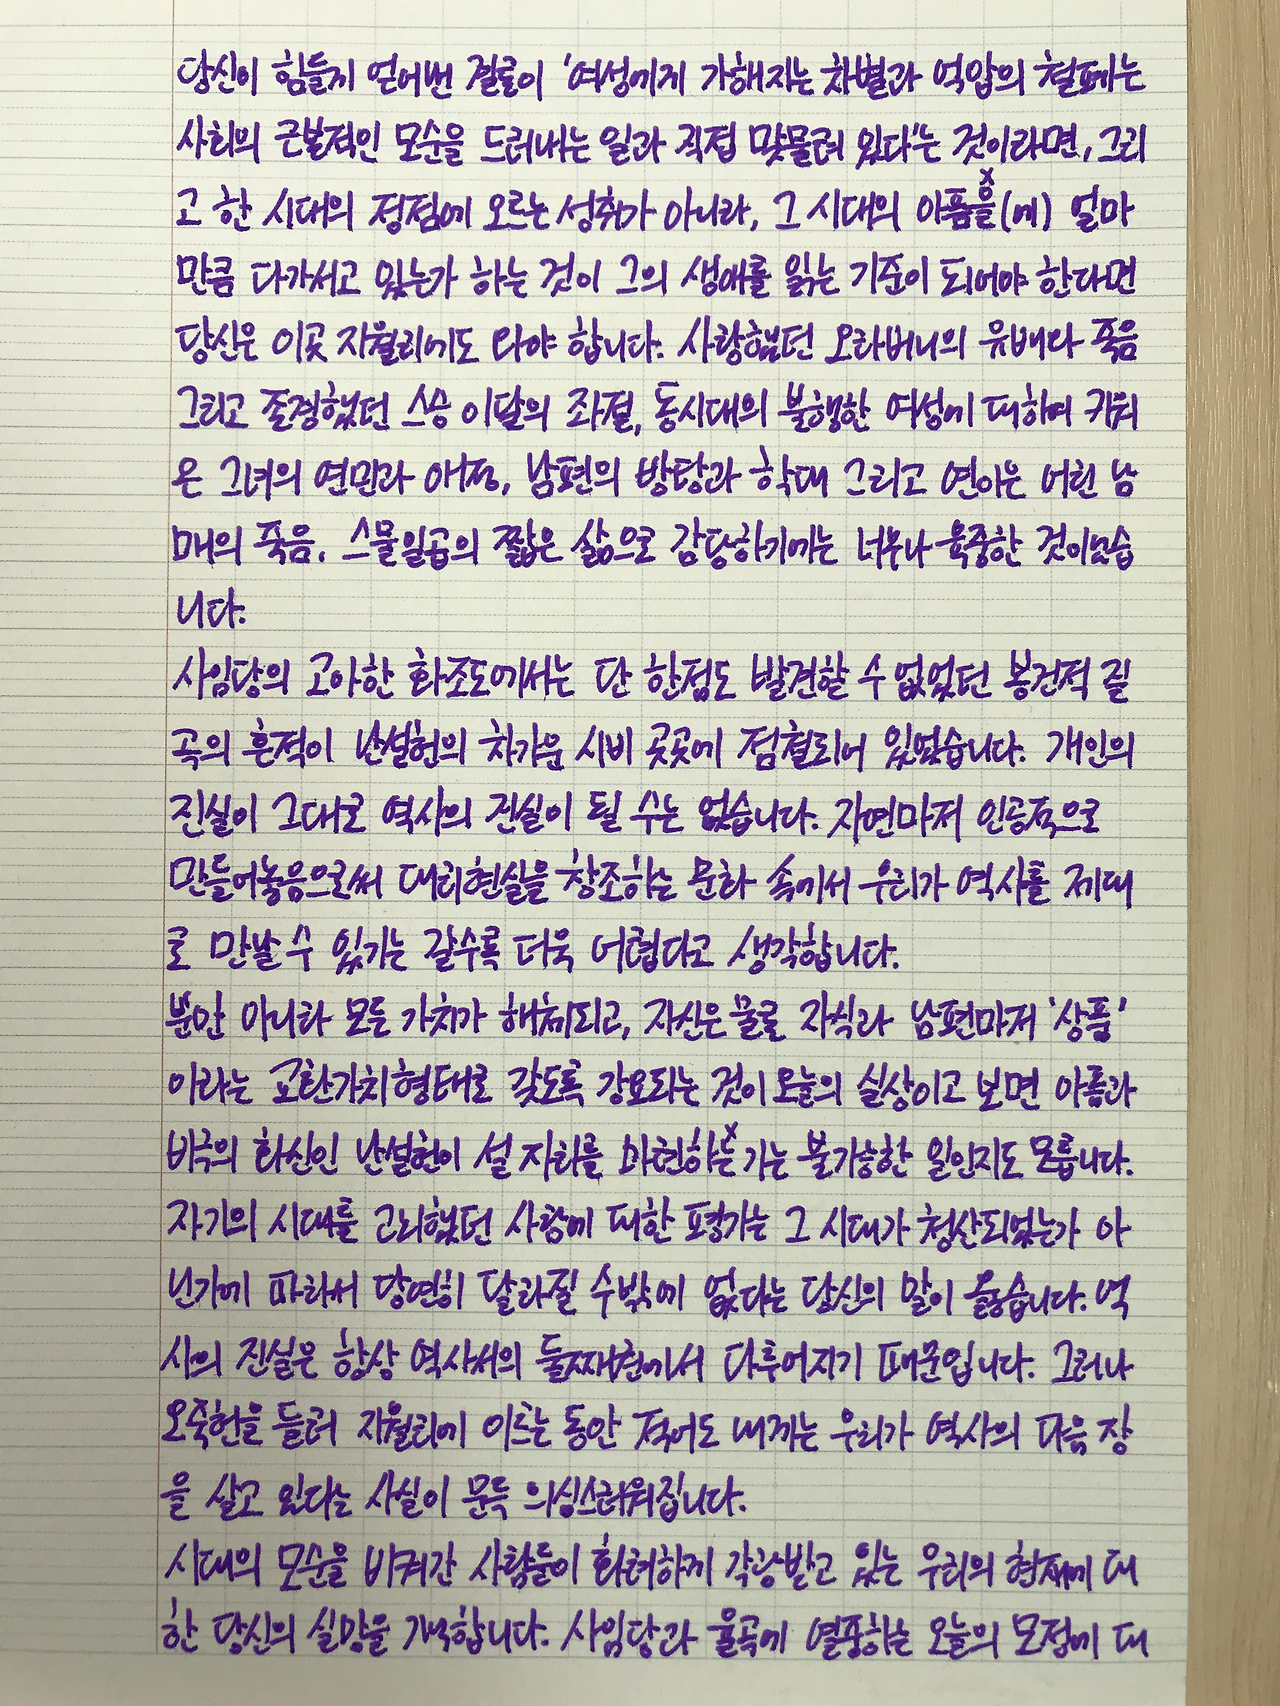 당신이 힘들게 얻어낸 결론이 '여성에게 가해지는 차별과 억압의 철폐는
사회의 근본적인 모순을 드러내는 일과 직접 맞물려 있다'는 것이라면, 그리
고 한 시대의 정점에 오르는 성취가 아니라, 그 시대의 아픔을(에) 얼마
만큼 다가서고 있는가 하는 것이 그의 생애를 읽는 기준이 되어야 한다면
당신은 이곳 지월리에도 와야 합니다. 사랑했던 오라버니의 유배와 죽음
그리고 존경했던 스승 이달의 좌절, 동시대의 불행한 여성에 대하여 키워
온 그녀의 연민과 애정, 남편의 방탕과 학대 그리고 연이은 어린 남
매의 죽음. 스물일곱의 짧은 삶으로 감당하기에는 너무나 육중한 것이었습
니다.
사임당의 고아한 화조도에서는 단 한점도 발견할 수 없었던 봉건적 질
곡의 흔적이 난설헌의 차가운 시비 곳곳에 점철되어 있었습니다. 개인의
진실이 그대로 역사의 진실이 될 수는 없습니다. 자연마저 인공적으로
만들어놓음으로써 대리현실을 창조하는 문화 속에서 우리가 역사를 제대
로 만날 수 있기는 갈수록 더욱 어렵다고 생각합니다.
뿐만 아니라 모든 가치가 해체되고, 자신은 물론 자식과 남편마저 '상품'
이라는 교환가치형태로 갖도록 강요되는 것이 오늘의 실상이고 보면 아픔과
비극의 화신인 난설헌이 설 자리를 마련하는기는 불가능한 일인지도 모릅니다.
자기의 시대를 고뇌했던 사람에 대한 평가는 그 시대가 청산되었는가 아
닌가에 따라서 당연히 달라질 수밖에 없다는 당신의 말이 옳습니다. 역
사의 진실은 항상 역사서의 둘째권에서 다루어지기 때문입니다. 그러나
오죽헌을 들러 지월리에 이르는 동안 적어도 내게는 우리가 역사의 다음 장
을 살고 있다는 사실이 문득 의심스러워집니다.
시대의 모순을 비켜간 사람들이 화려하게 각광받고 있는 우리의 현재에 대
한 당신의 실망을 기억합니다. 사임당과 율곡에 열중하는 오늘의 모정에 대